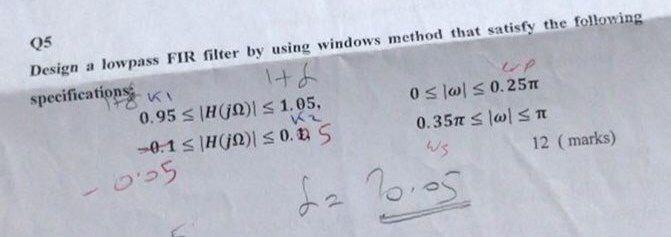 Q5
Design a lowpass FIR filter by using windows method that satisfy the following
specifications:
1+δ
K1
0.95 ≤ |H(jΩ)| ≤ 1.05, 0 ≤ |ω| ≤ 0.25π
ωp
K2
-0.1 ≤ |H(jΩ)| ≤ 0. 5 0.35π ≤ |ω| ≤ π
ωs
12 ( marks)
- 0.05
δ = 0.05